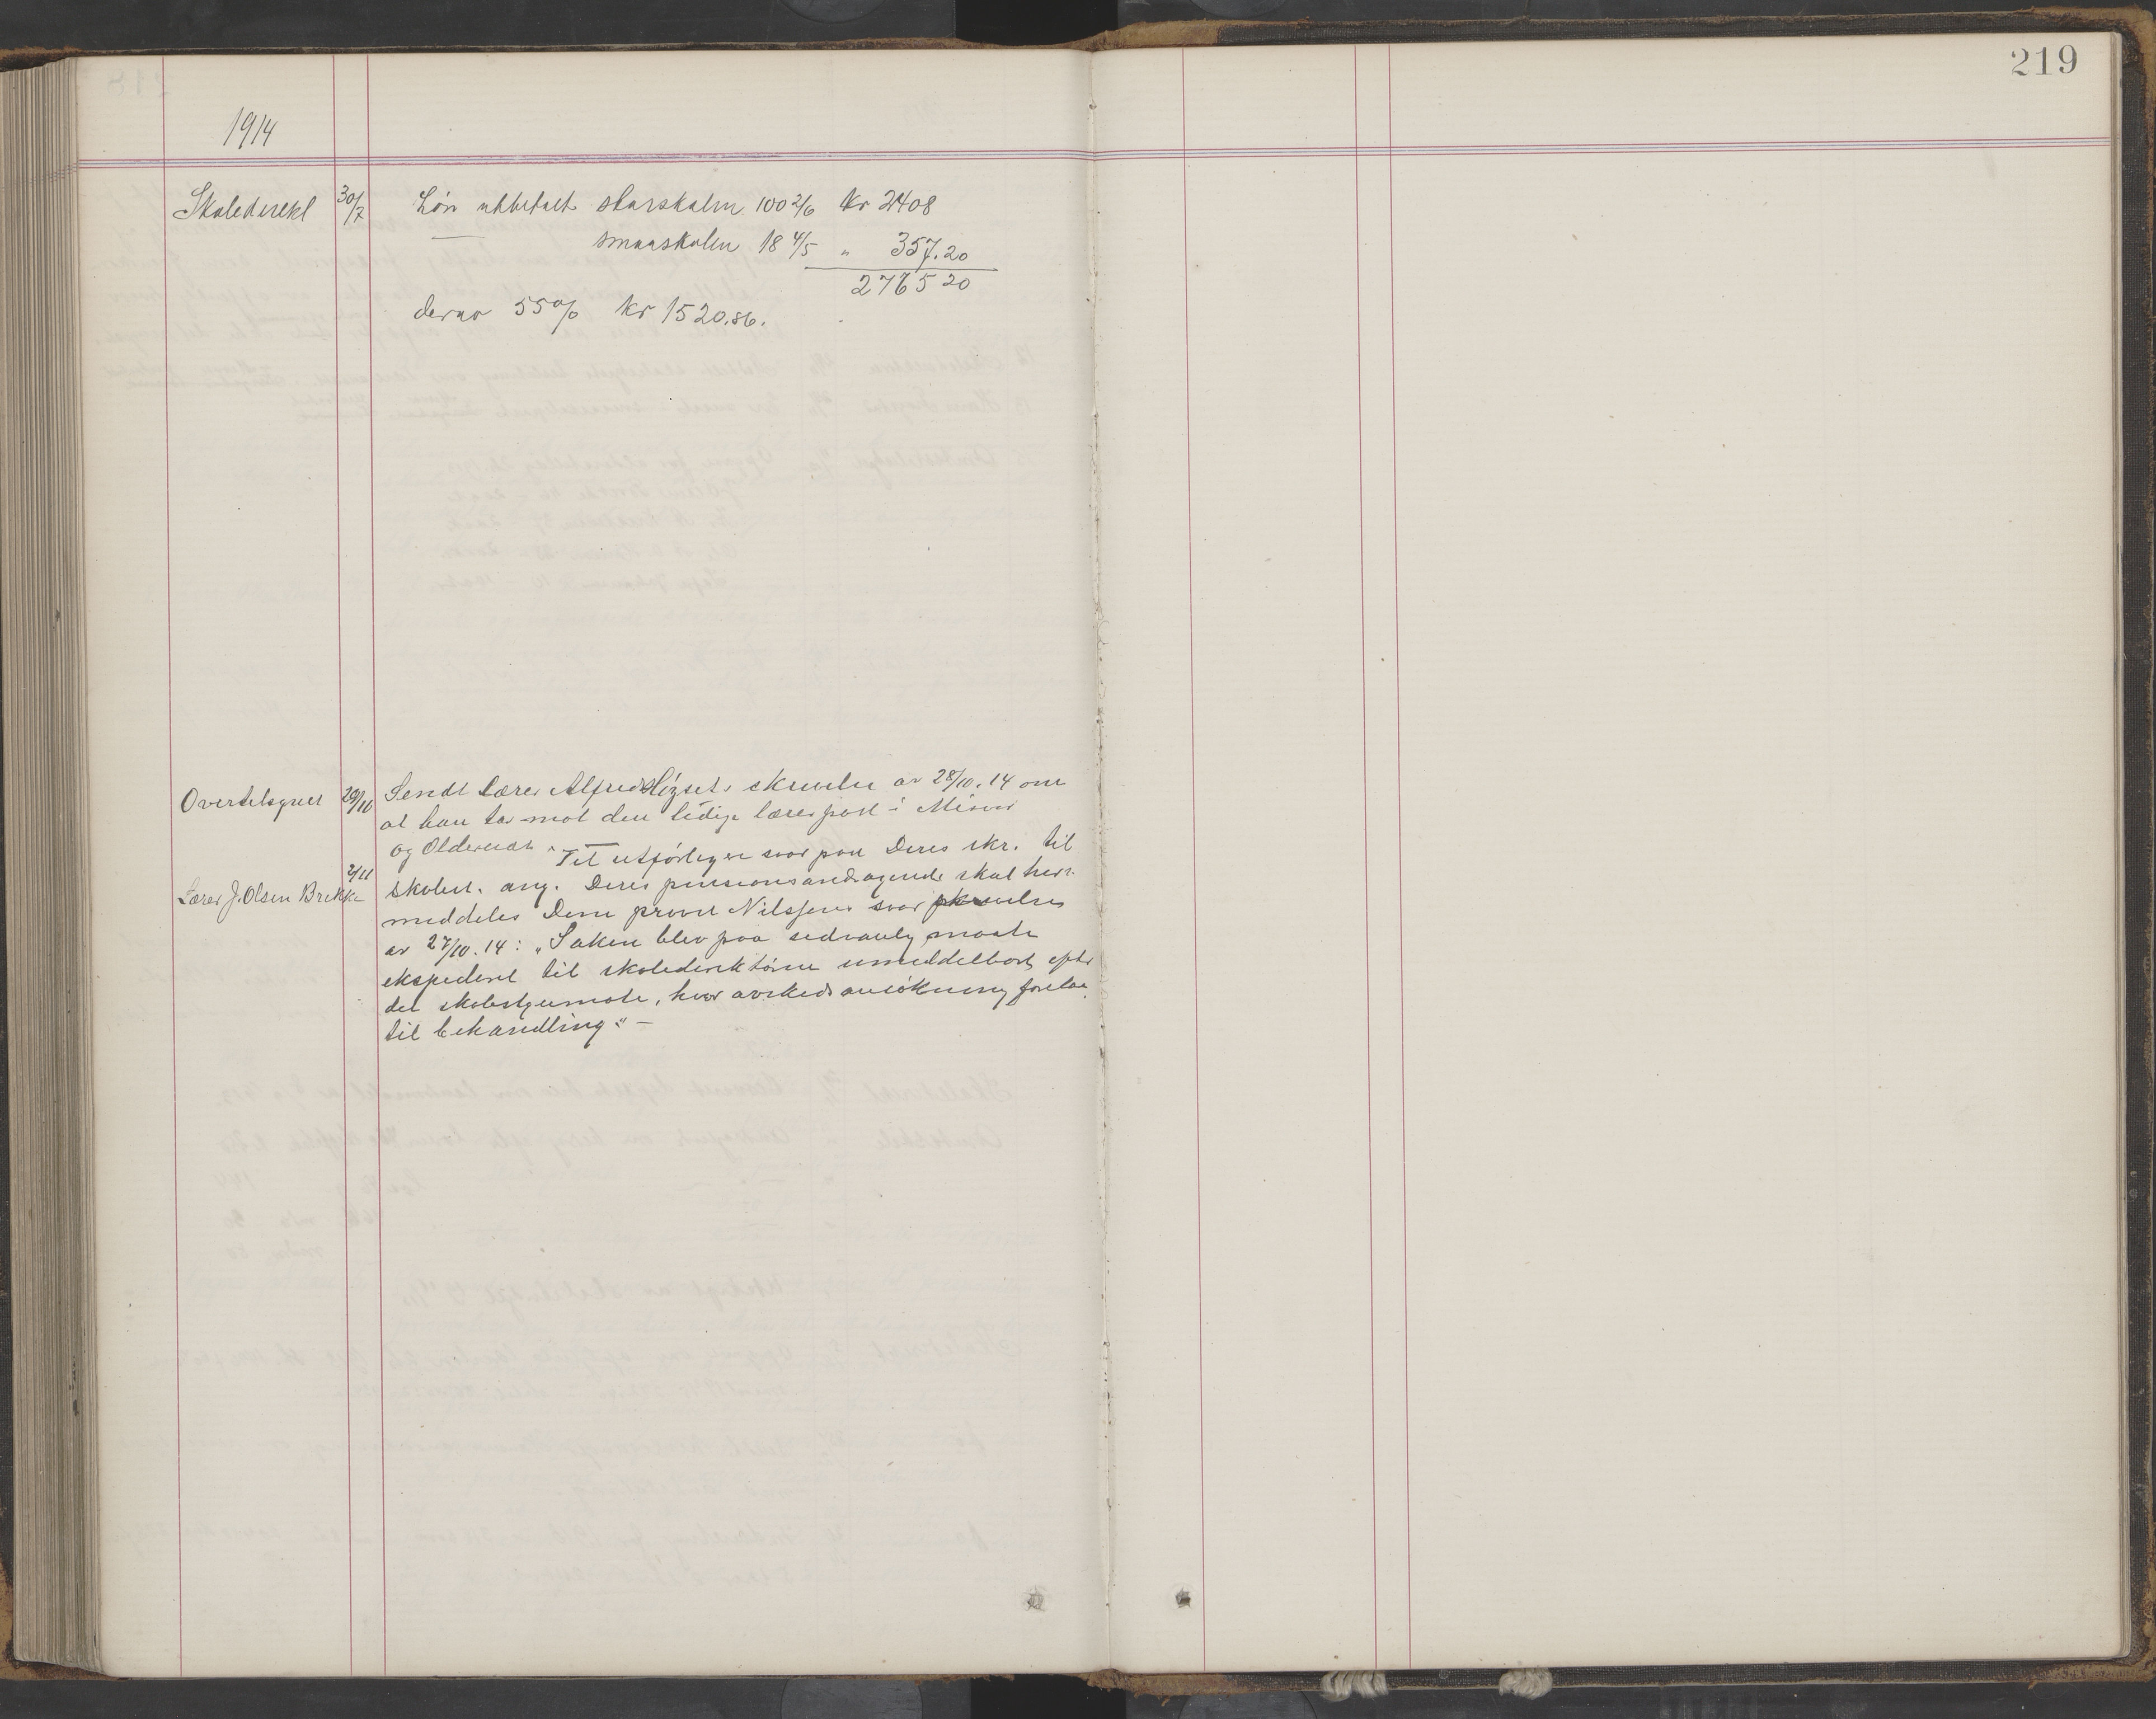 219
1914
Skoledirekt 30/7 Løn utbetalt storskolen 100 2/6 Kr 2408
smaaskolen 18 4/5 " 357.20
2765 20
derav 55% Kr 1520.86.
Overtilsynet 29/10 Sendt Lærer Alfred skrivelse av 28/10. 14 om
at han tar mot den ledige lærerpost i Misvær
og Oldereide.
Lærer J. Olsen Brekke 2/11 Til utførligere svar paa Deres skr. til
skolest. ang. Deres pensionsandragende skal herv.
meddeles Dem provst Nilssens svar skrivelse
av 27/10. 14: "Saken blev paa sedvanlig maate
ekspederet til skoledirektøren umiddelbart efter
det skolestyremøte, hvor avskedsansøkning forelaa
til behandling." —